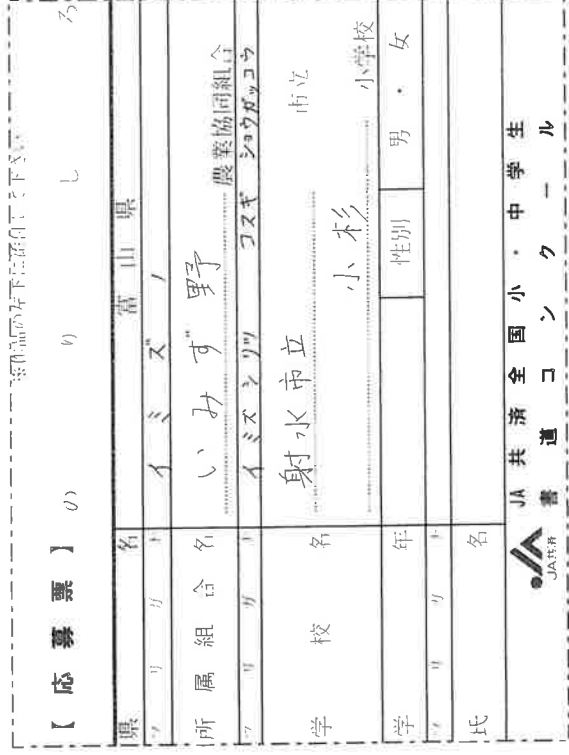 ※作品の左下に貼付して下さい
【 応 募 票 】 の り し ろ
県 名 富 山 県
フ リ ガ ナ イ ミ ズ ノ
所 属 組 合 名 い み ず 野 農業協同組合
フ リ ガ ナ イミズシリツ コスギ ショウガッコウ
学 校 名 射水市立 市立
小杉 小学校
学 年 性別 男 ・ 女
フ リ ガ ナ
氏 名
JA共済 JA 共 済 全 国 小 ・ 中 学 生
書 道 コ ン ク ー ル